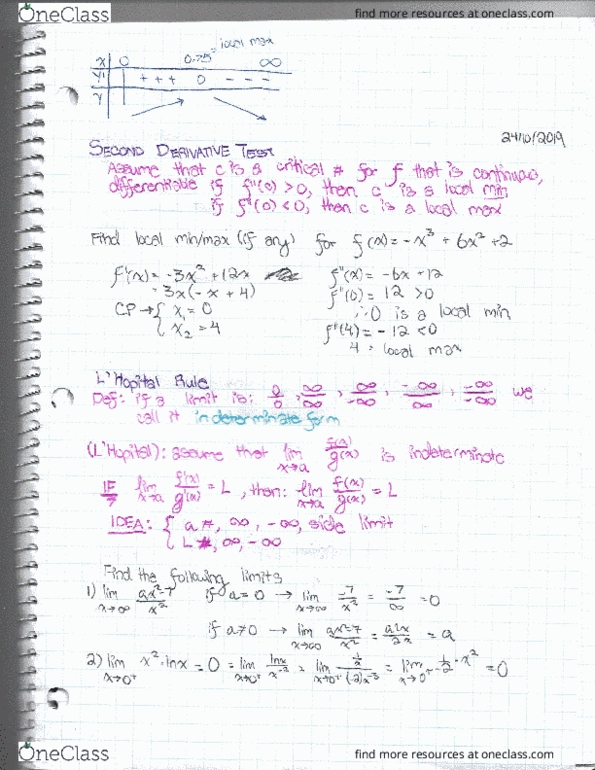 OneClass
find more resources at oneclass.com
local max
x 0 0.75 ∞
y' + + + 0 - - -
y
24/10/2019
SECOND DERIVATIVE TEST
Assume that c is a critical # for f that is continuous,
differentiable if f''(0) > 0, then c is a local min
if f''(0) < 0, then c is a local max
Find local min/max (if any) for f(x) = -x³ + 6x² + 2
f'(x) = -3x² + 12x
= 3x(-x + 4)
CP → { x₁ = 0
x₂ = 4
f''(x) = -6x + 12
f''(0) = 12 > 0
∴ 0 is a local min
f''(4) = -12 < 0
4 = local max
L'Hopital Rule
Def: if a limit is: 0/0, ∞/∞, ∞/-∞, -∞/∞, -∞/-∞ we
call it indeterminate form
(L'Hopital): assume that lim x→a f(x)/g(x) is indeterminate
IF lim x→a f'(x)/g'(x) = L, then: lim x→a f(x)/g(x) = L
IDEA: { a #, ∞, -∞, side limit
L #, ∞, -∞
Find the following limits
1) lim x→∞ ax²-7/x² if a = 0 → lim x→∞ -7/x² = -7/∞ = 0
if a ≠ 0 → lim x→∞ ax²-7/x² = a2x/2x = a
2) lim x→0⁺ x²·lnx = 0 = lim x→0⁺ lnx/x⁻² = lim x→0⁺ 1/x/(-2)x⁻³ = lim x→0⁺ -1/2·x² = 0
OneClass
find more resources at oneclass.com